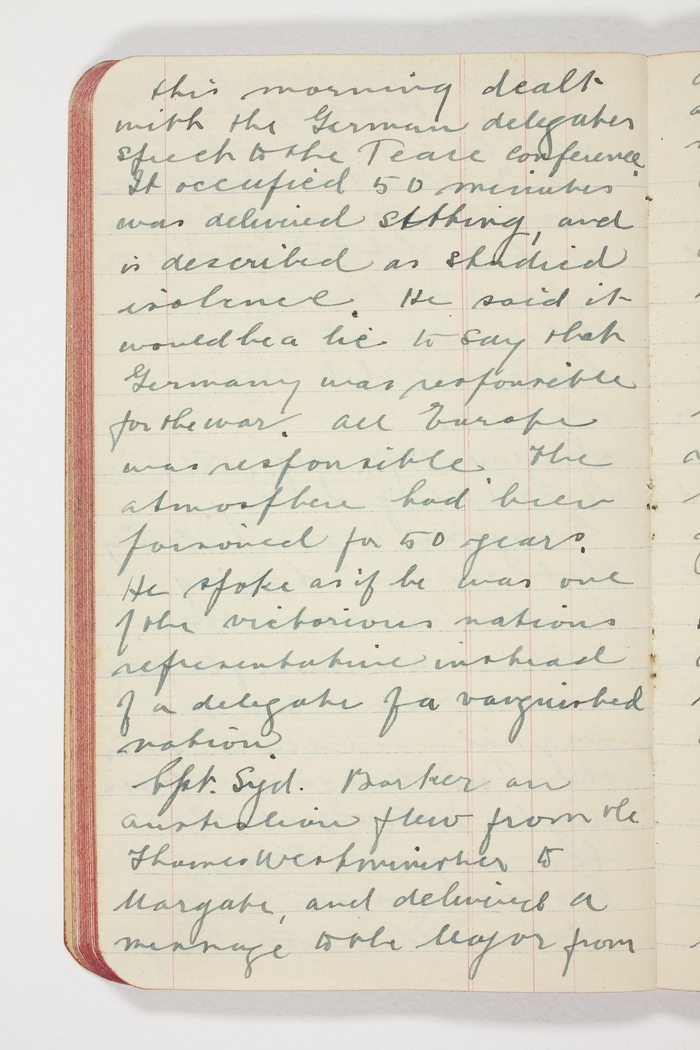 this morning dealt
with the German delegates
speech to the Peace conference.
It occupied 50 minutes
was delivered sitting, and
is described as studied
isolence. He said it
would be a lie to say that
Germany was responsible
for the war. All Europe
was responsible. The
atmosphere had been
poisoned for 50 years.
He spoke as if he was one
of the victorious nations
representative instead
of a delegate of a vanquished
nation.
Cpt. Syd. Barker an
Australian flew from the
Thames Westminister to
Margate, and delivered a
message to the Mayor from